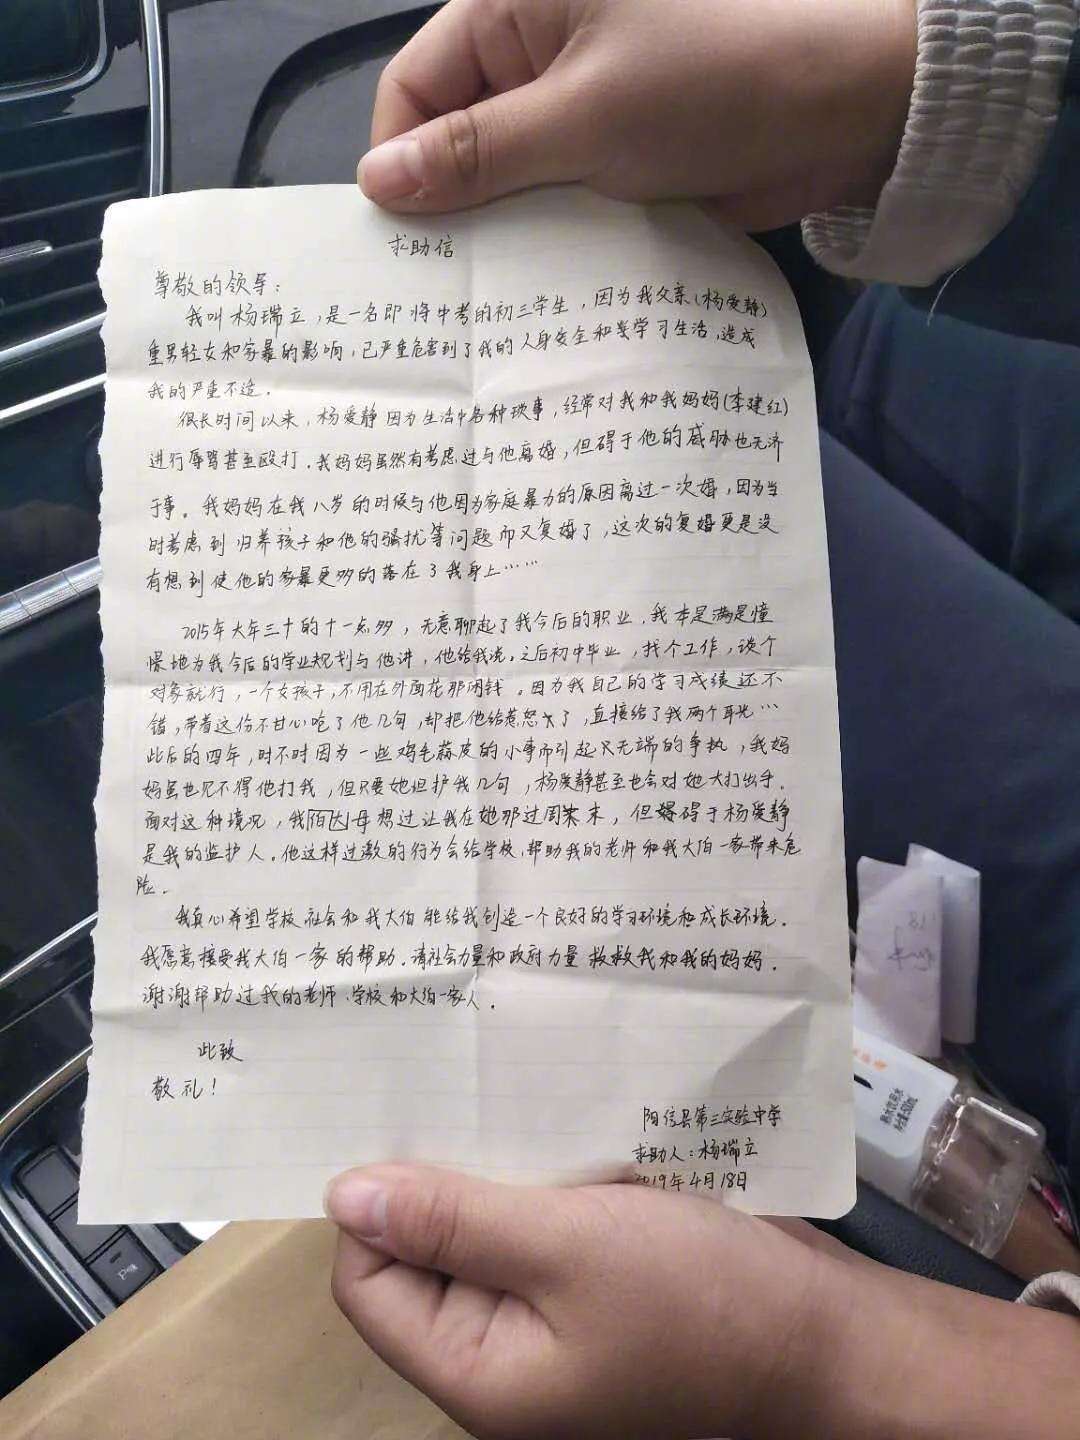 求助信
尊敬的领导：
我叫杨瑞立，是一名即将中考的初三学生，因为我父亲(杨爱静)
重男轻女和家暴的影响，已严重危害到了我的人身安全和学习生活，造成
我的严重不适。
很长时间以来，杨爱静因为生活中各种琐事，经常对我和我妈妈(李建红)
进行辱骂甚至殴打。我妈妈虽然有考虑过与他离婚，但碍于他的威胁也无济
于事。我妈妈在我八岁的时候与他因为家庭暴力的原因离过一次婚，因为当
时考虑到归养孩子和他的骚扰等问题而又复婚了，这次的复婚更是没
有想到使他的家暴更多的落在了我身上……
2015年大年三十的十一点多，无意聊起了我今后的职业，我本是满是憧
憬地为我今后的学业规划与他讲，他给我说。之后初中毕业，找个工作，谈个
对象就行，一个女孩子，不用在外面花那闲钱。因为我自己的学习成绩还不
错，带着这份不甘心吃了他几句，却把他给惹怒了，直接给了我两个耳光…
此后的四年，时不时因为一些鸡毛蒜皮的小事而引起无端的争执，我妈
妈虽也见不得他打我，但只要她袒护我几句，杨爱静甚至也会对她大打出手。
面对这种境况，我伯母想过让我在她那过周末，但碍于杨爱静
是我的监护人。他这样过激的行为会给学校、帮助我的老师和我大伯一家带来危
险。
我真心希望学校社会和我大伯能给我创造一个良好的学习环境和成长环境。
我愿意接受我大伯一家的帮助。请社会力量和政府力量救救我和我的妈妈。
谢谢帮助过我的老师、学校和大伯一家人。
此致
敬礼！
阳信县第三实验中学
求助人：杨瑞立
2019年4月18日